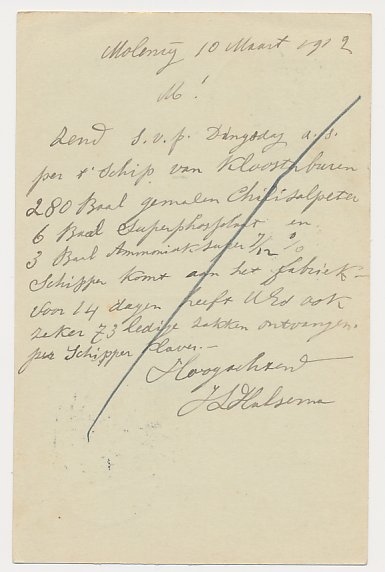 10 Maart 1912
M!
Zend s.v.p. Dingsdag a.s.
per s' Schip van Kloosterburen
280 Baal gemalen Chilisalpeter
6 Baal Superphosphaat en
3 Baal Ammoniak super 7/12 %
Schipper komt aan het fabriek –
voor 14 dagen heeft UEd ook
zeker 73 ledige zakken ontvangen
per Schipper Claver. –
Hoogachtend
Halsema